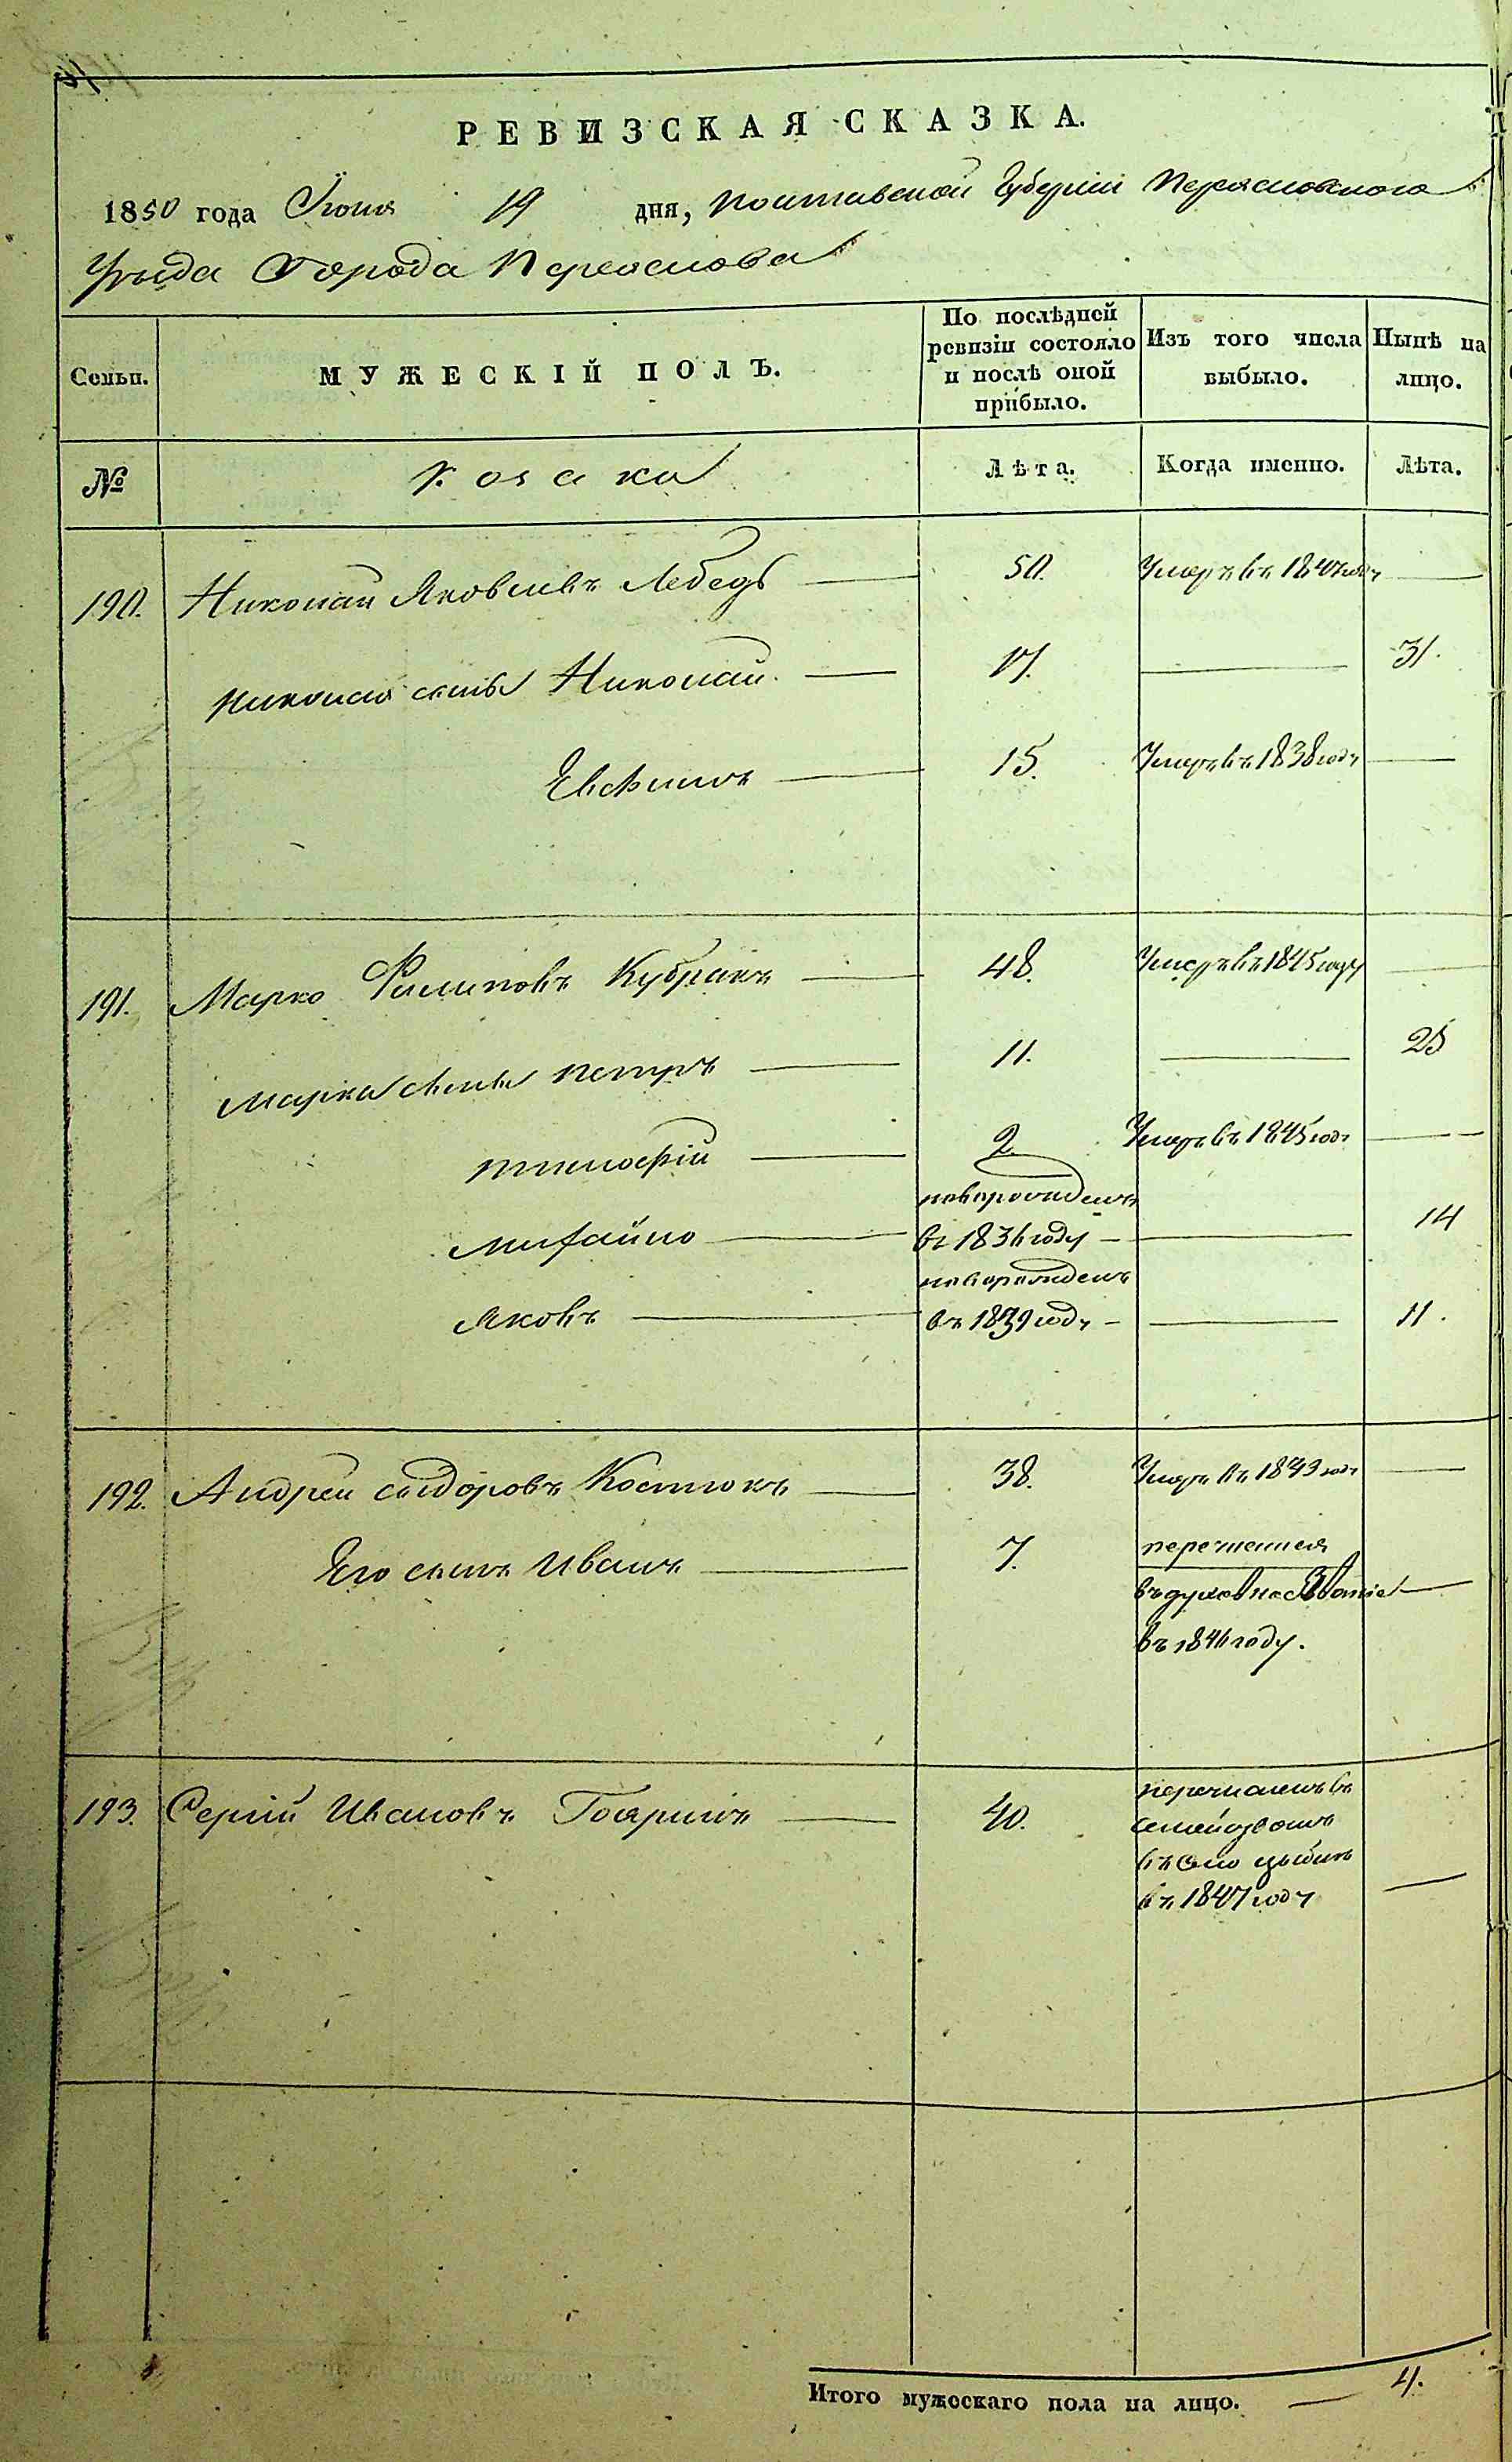 РЕВИЗСКАЯ СКАЗКА.
1850 года Июня 19 дня, Полтавской Губерніи Переясловского
Уезда Города Переяслова
Семьи. МУЖЕСКІЙ ПОЛЪ. По послѣдней ревизіи состояло и послѣ оной прибыло. Изъ того числа выбыло. Нынѣ на лицо.
№ Козаки Лѣта. Когда именно. Лѣта.
190. Николай Яковлевъ Лебедь 50. Умеръ въ 1847 году
Николая сынъ Николай. 17. 31.
Евфимъ 15. Умеръ въ 1838 году
191. Марко Филиповъ Кубракъ 48. Умеръ въ 1845 году
Марка сыны Петръ 11. 25
Тимофій 2 Умеръ въ 1845 году
новорожденъ
Михайло въ 1836 году 14
новорожденъ
Яковъ въ 1839 году 11.
192. Андрей Сыдоровъ Костюкъ 38. Умеръ въ 1849 году
Его сынъ Иванъ 7. перечислен
въ духовное звание
въ 1846 году.
193. Сергій Ивановъ 40. перечисленъ въ
въ село
въ 1847 году
Итого мужескаго пола на лицо. 4.